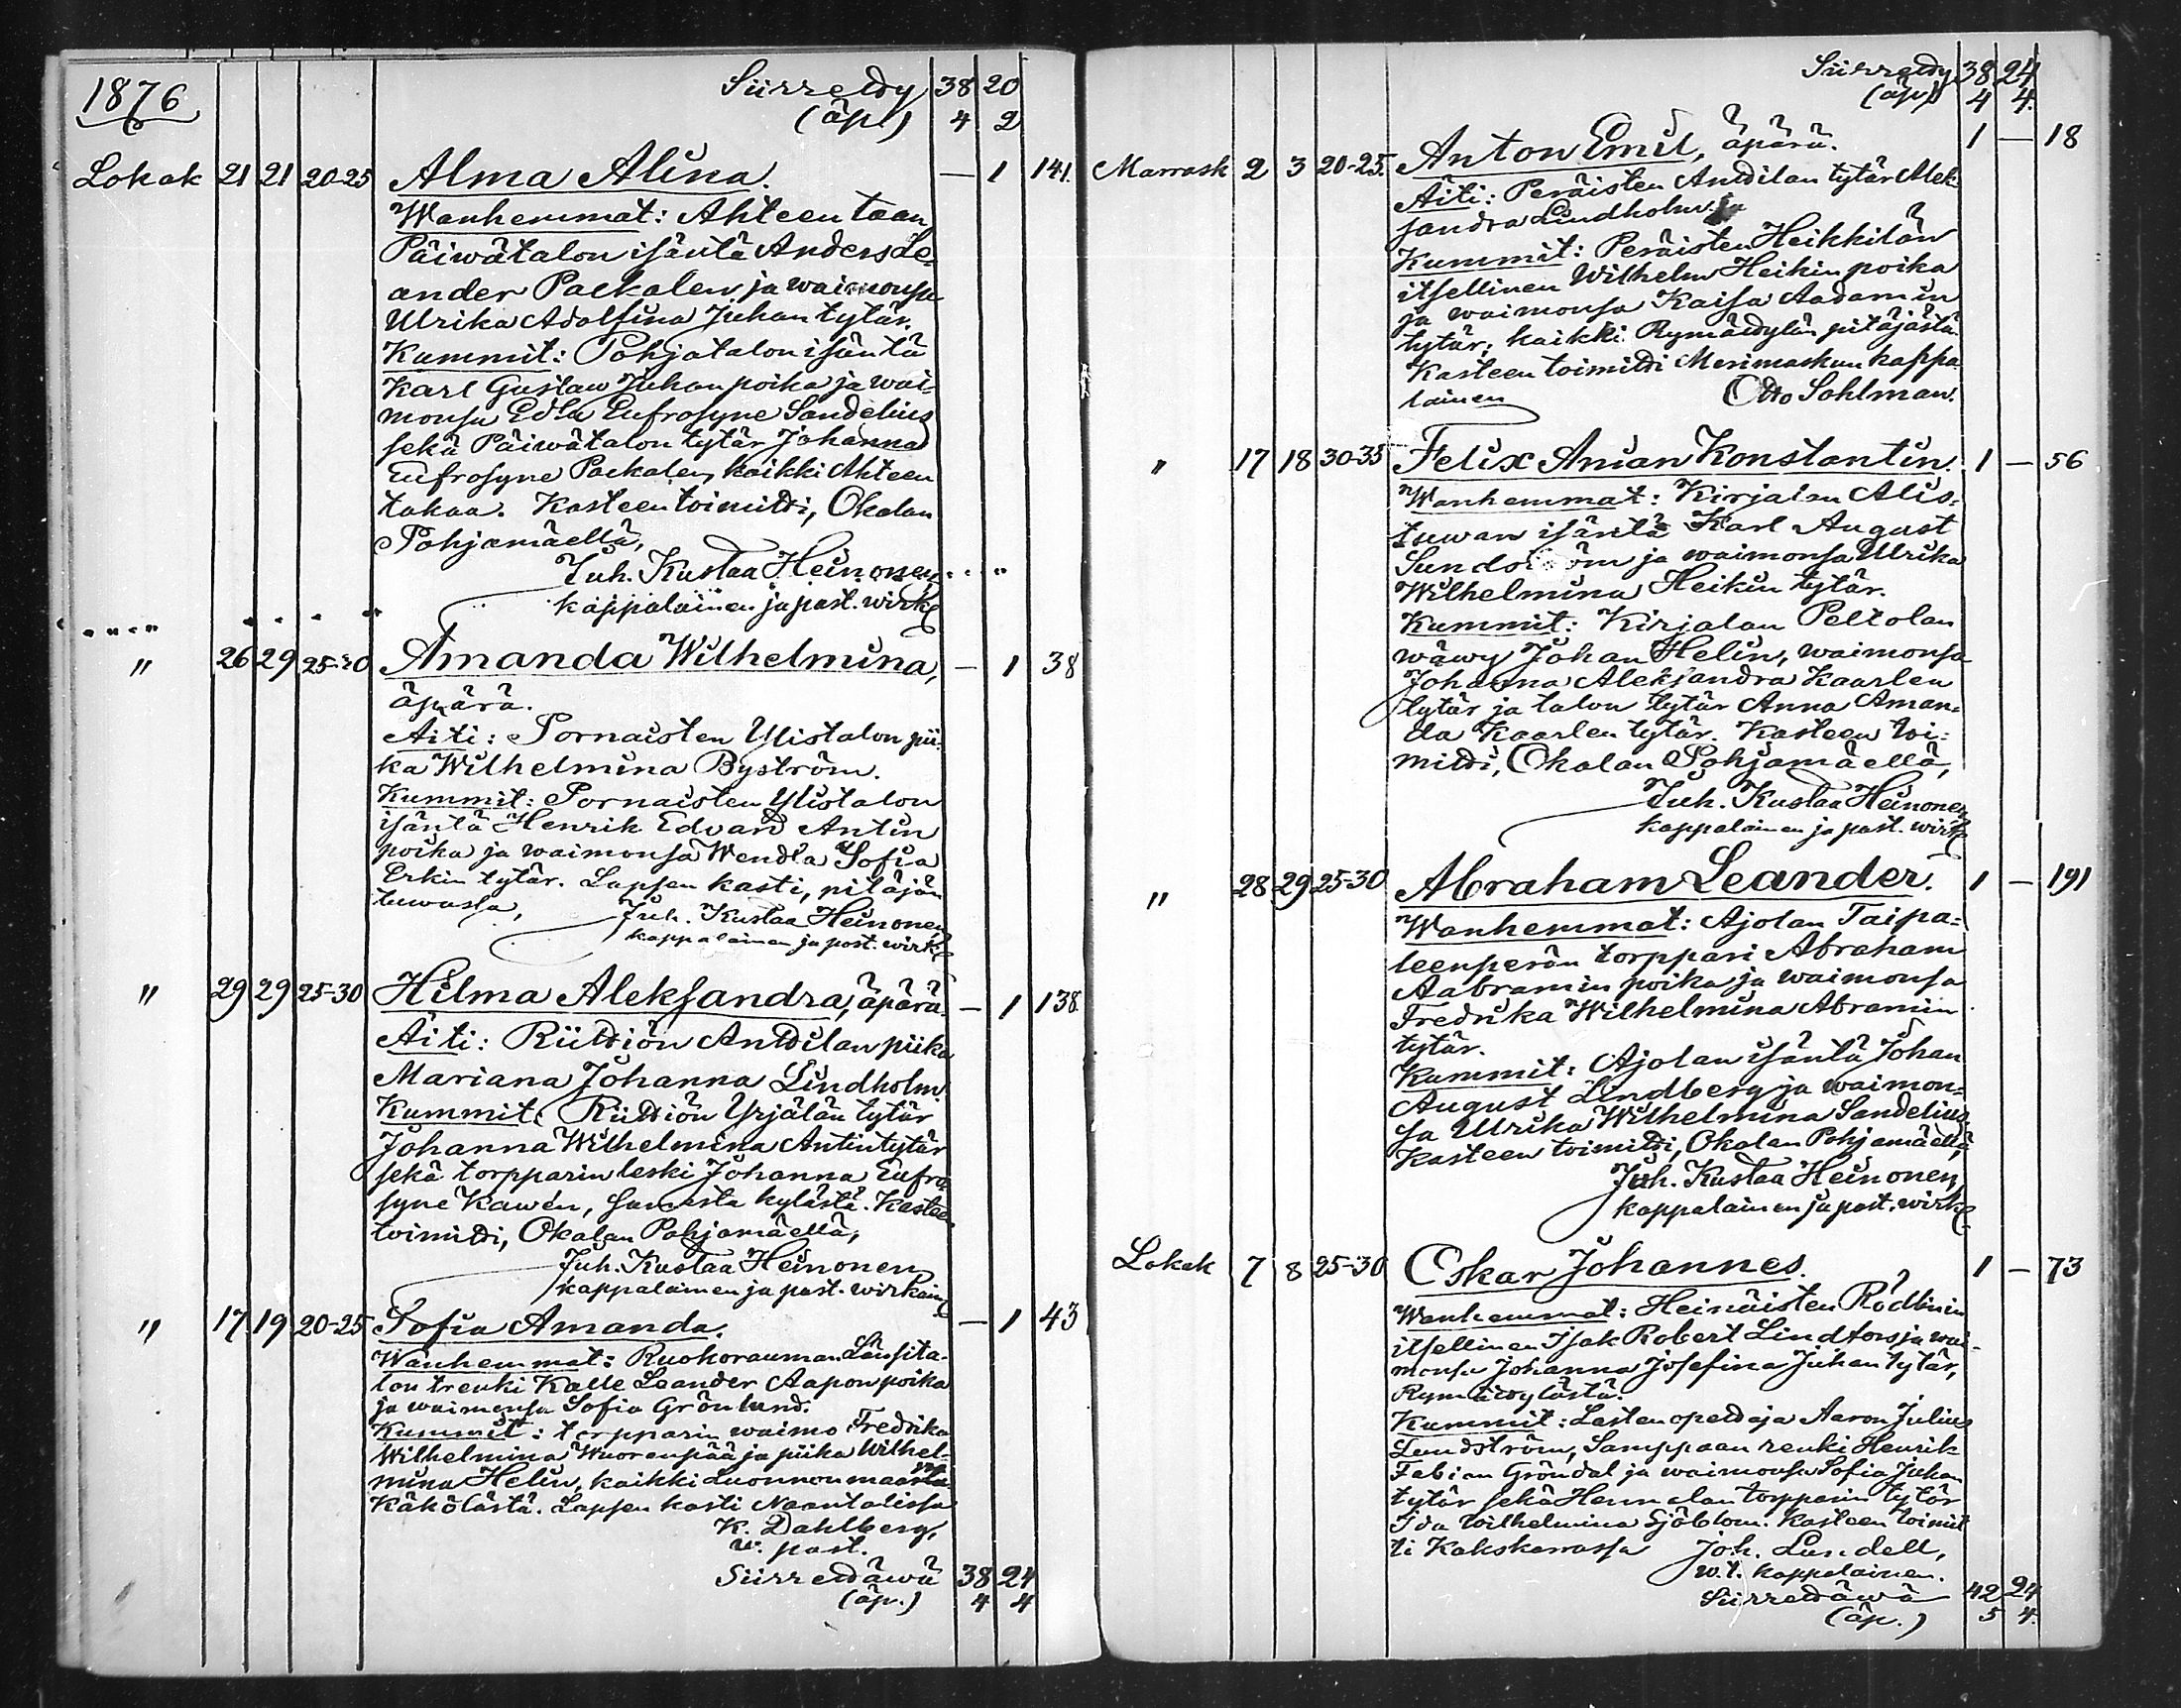 1876
Siirretty 38 20
(äp.) 4 2
Lokak 21 21 20-25 Alma Alina. — 1 141.
Wanhemmat: Ahteentaan
Päiwätalon isäntä Anders Le-
ander Packalen ja waimonsa
Ulrika Adolfina Juhan tytär.
Kummit: Pohjatalon isäntä
Karl Gustaw Juhan poika ja wai-
monsa Edla Eufrosyne Sandelius
sekä Päiwätalon tytär Johanna
Eufrosyne Packalen, kaikki Ahteen
takaa. Kasteen toimitti, Okalan
Pohjamäellä,
Juh. Kustaa Heinonen,
kappalainen ja past. wirk.
" 26 29 25-30 Amanda Wilhelmina, — 1 38
äpärä.
Äiti: Pornaisten Ylistalon pii-
ka Wilhelmina Byström.
Kummit: Pornaisten Ylistalon
isäntä Henrik Edvard Antin
poika ja waimonsa Wendla Sofia
Erkin tytär. Lapsen kasti, pitäjän
tuwassa,
Juh. Kustaa Heinonen,
kappalainen ja past. wirk.
" 29 29 25-30 Hilma Aleksandra, äpärä. — 1 138.
Äiti: Riittiön Anttilan piika
Mariana Johanna Lindholm.
Kummit: Riittiön Yrjälän tytär
Johanna Wilhelmina Antintytär
sekä torpparin leski Johanna Eufro-
syne Kawén, samasta kylästä. Kasteen
toimitti, Okalan Pohjamäellä,
Juh. Kustaa Heinonen
kappalainen ja past. wirkain
" 17 19 20-25 Sofia Amanda. — 1 43
Wanhemmat: Ruokorauman Länsita-
lon trenki Kalle Leander Aapon poika
ja waimonsa Sofia Grönlund.
Kummit: torpparin waimo Fredrika
Wilhelmina Wuorenpää ja piika Wilhel-
mina Helin, kaikki Luonnonmaan
Käkölästä. Lapsen kasti Naantalissa
K. Dahlberg,
w. past.
Siirrettäwä 38 24
(äp.) 4 4
Siirretty 38 24
(äp.) 4 4.
Marrask 2 3 20-25. Anton Emil, äpärä. 1 — 18
Äiti: Peräisten Anttilan tytär Alek-
sandra Lindholm.
Kummit: Peräisten Heikkilän
itsellinen Wilhelm Heikin poika
ja waimonsa Kaisa Aadamin
tytär, kaikki Rymättylän pitäjästä.
Kasteen toimitti Merimaskun kappa-
lainen Otto Sohlman.
" 17 18 30-35 Felix Anian Konstantin. 1 — 56
Wanhemmat: Kirjalan Alis-
tuwan isäntä Karl August
Sundström ja waimonsa Ulrika
Wilhelmina Heikin tytär.
Kummit: Kirjalan Peltolan
wäwy Johan Helin, waimonsa
Johanna Aleksandra Kaarlen
tytär ja talon tytär Anna Aman-
da Kaarlen tytär. Kasteen toi-
mitti, Okalan Pohjamäellä,
Juh. Kustaa Heinonen,
kappalainen ja past. wirk.
" 28 29 25-30 Abraham Leander. 1 — 191
Wanhemmat: Ajolan Taipa-
leenperän torppari Abraham
Aabramin poika ja waimonsa
Fredrika Wilhelmina Abramin
tytär.
Kummit: Ajolan isäntä Johan
August Lindberg ja waimon-
sa Ulrika Wilhelmina Sandelius.
Kasteen toimitti, Okalan Pohjamäellä,
Juh. Kustaa Heinonen,
kappalainen ja past. wirk.
Lokak 7 8 25-30 Oskar Johannes. 1 — 73
Wanhemmat: Heinäisten Rödbinin
itsellinen Isak Robert Lindfors ja wai-
monsa Johanna Josefina Juhan tytär,
Rymättylästä.
Kummit: Lasten opettaja Aaron Julius
Lundström, Samppaan renki Henrik
Fabian Gröndal ja waimonsa Sofia Juhan
tytär sekä Hennalan torpparin tytär
Ida Wilhelmina Sjöblom. Kasteen toimit-
ti Kakskerrassa Joh. Lundell,
w.t. kappalainen.
Siirrettäwä 42 24
(äp.) 5 4.